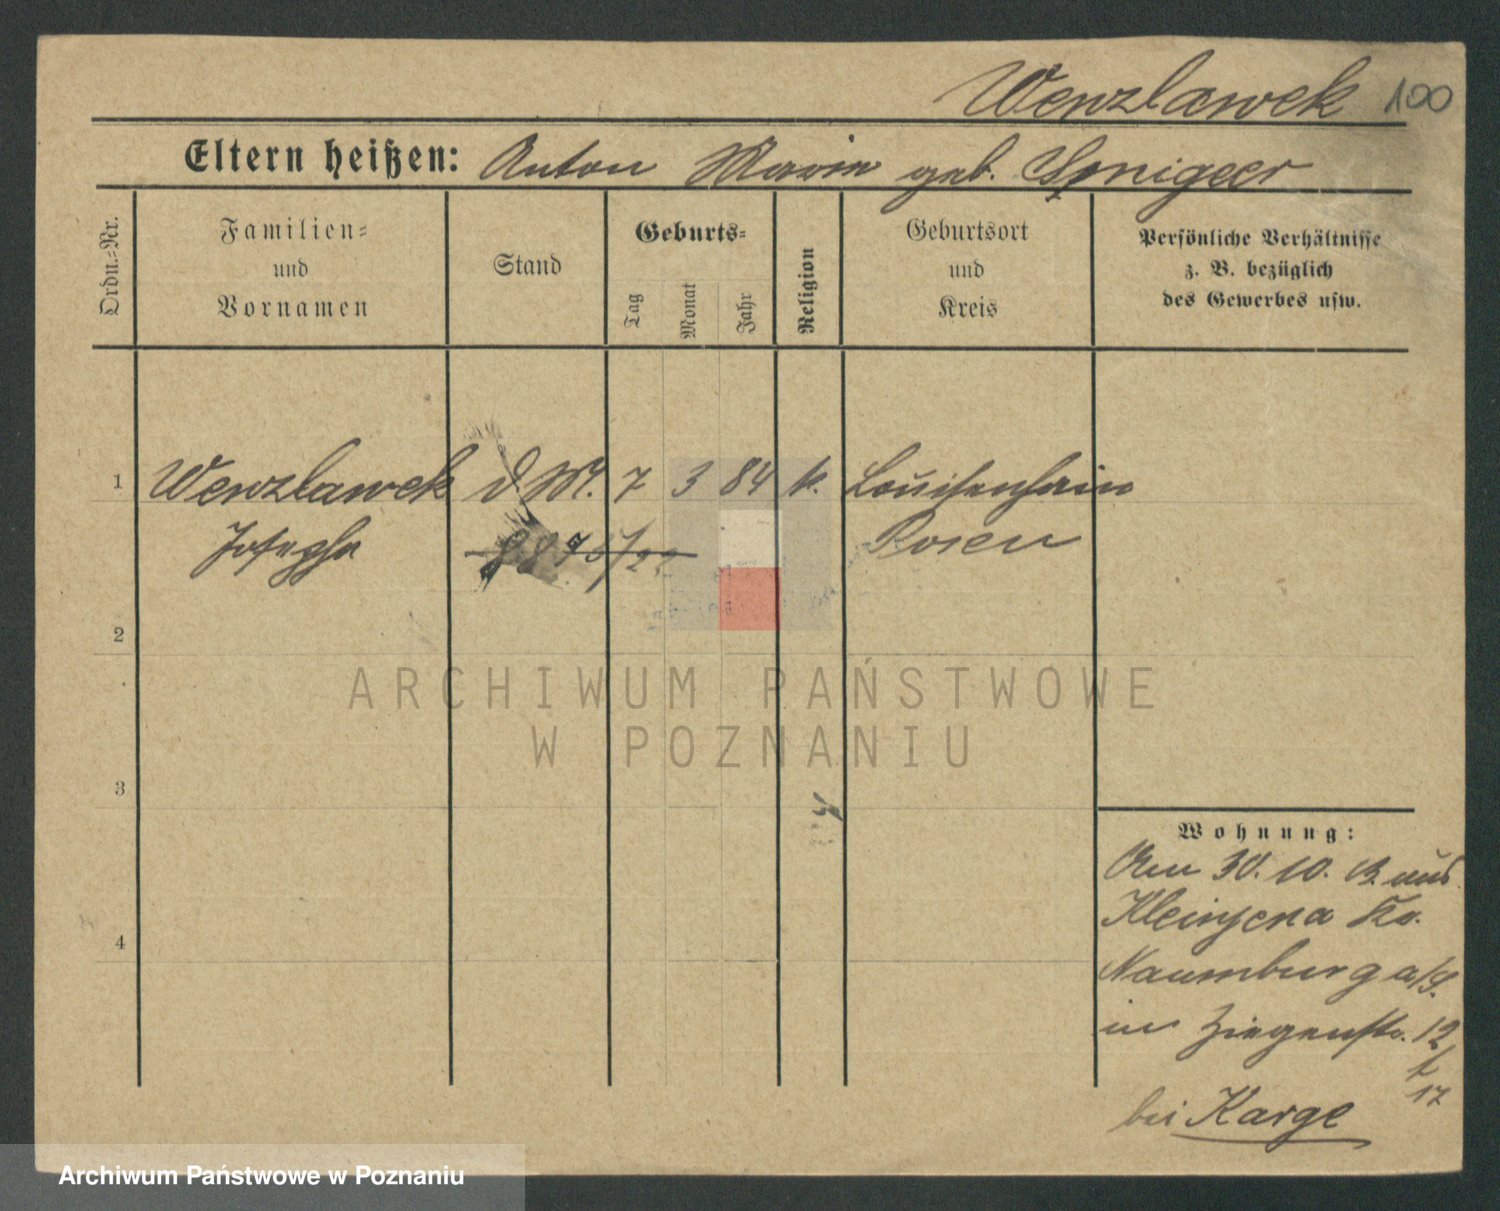 Wenzlawek 100
Eltern heißen: Anton Marie geb.
Ordn.-Nr.
Familien-
und
Vornamen
Stand
Geburts-
Tag
Monat
Jahr
Religion
Geburtsort
und
Kreis
Persönliche Verhältnisse
z. B. bezüglich
des Gewerbes usw.
1 Wenzlawek d. M. 7 3 84 k. Louisenhain
Josepha Posen
2
ARCHIWUM PAŃSTWOWE
W POZNANIU
3
4
Wohnung:
Am 30. 10. 13 aus
Kleinjena Kr.
Naumburg a/S.
in Ziegenstr. 12
17
bei Karge
Archiwum Państwowe w Poznaniu